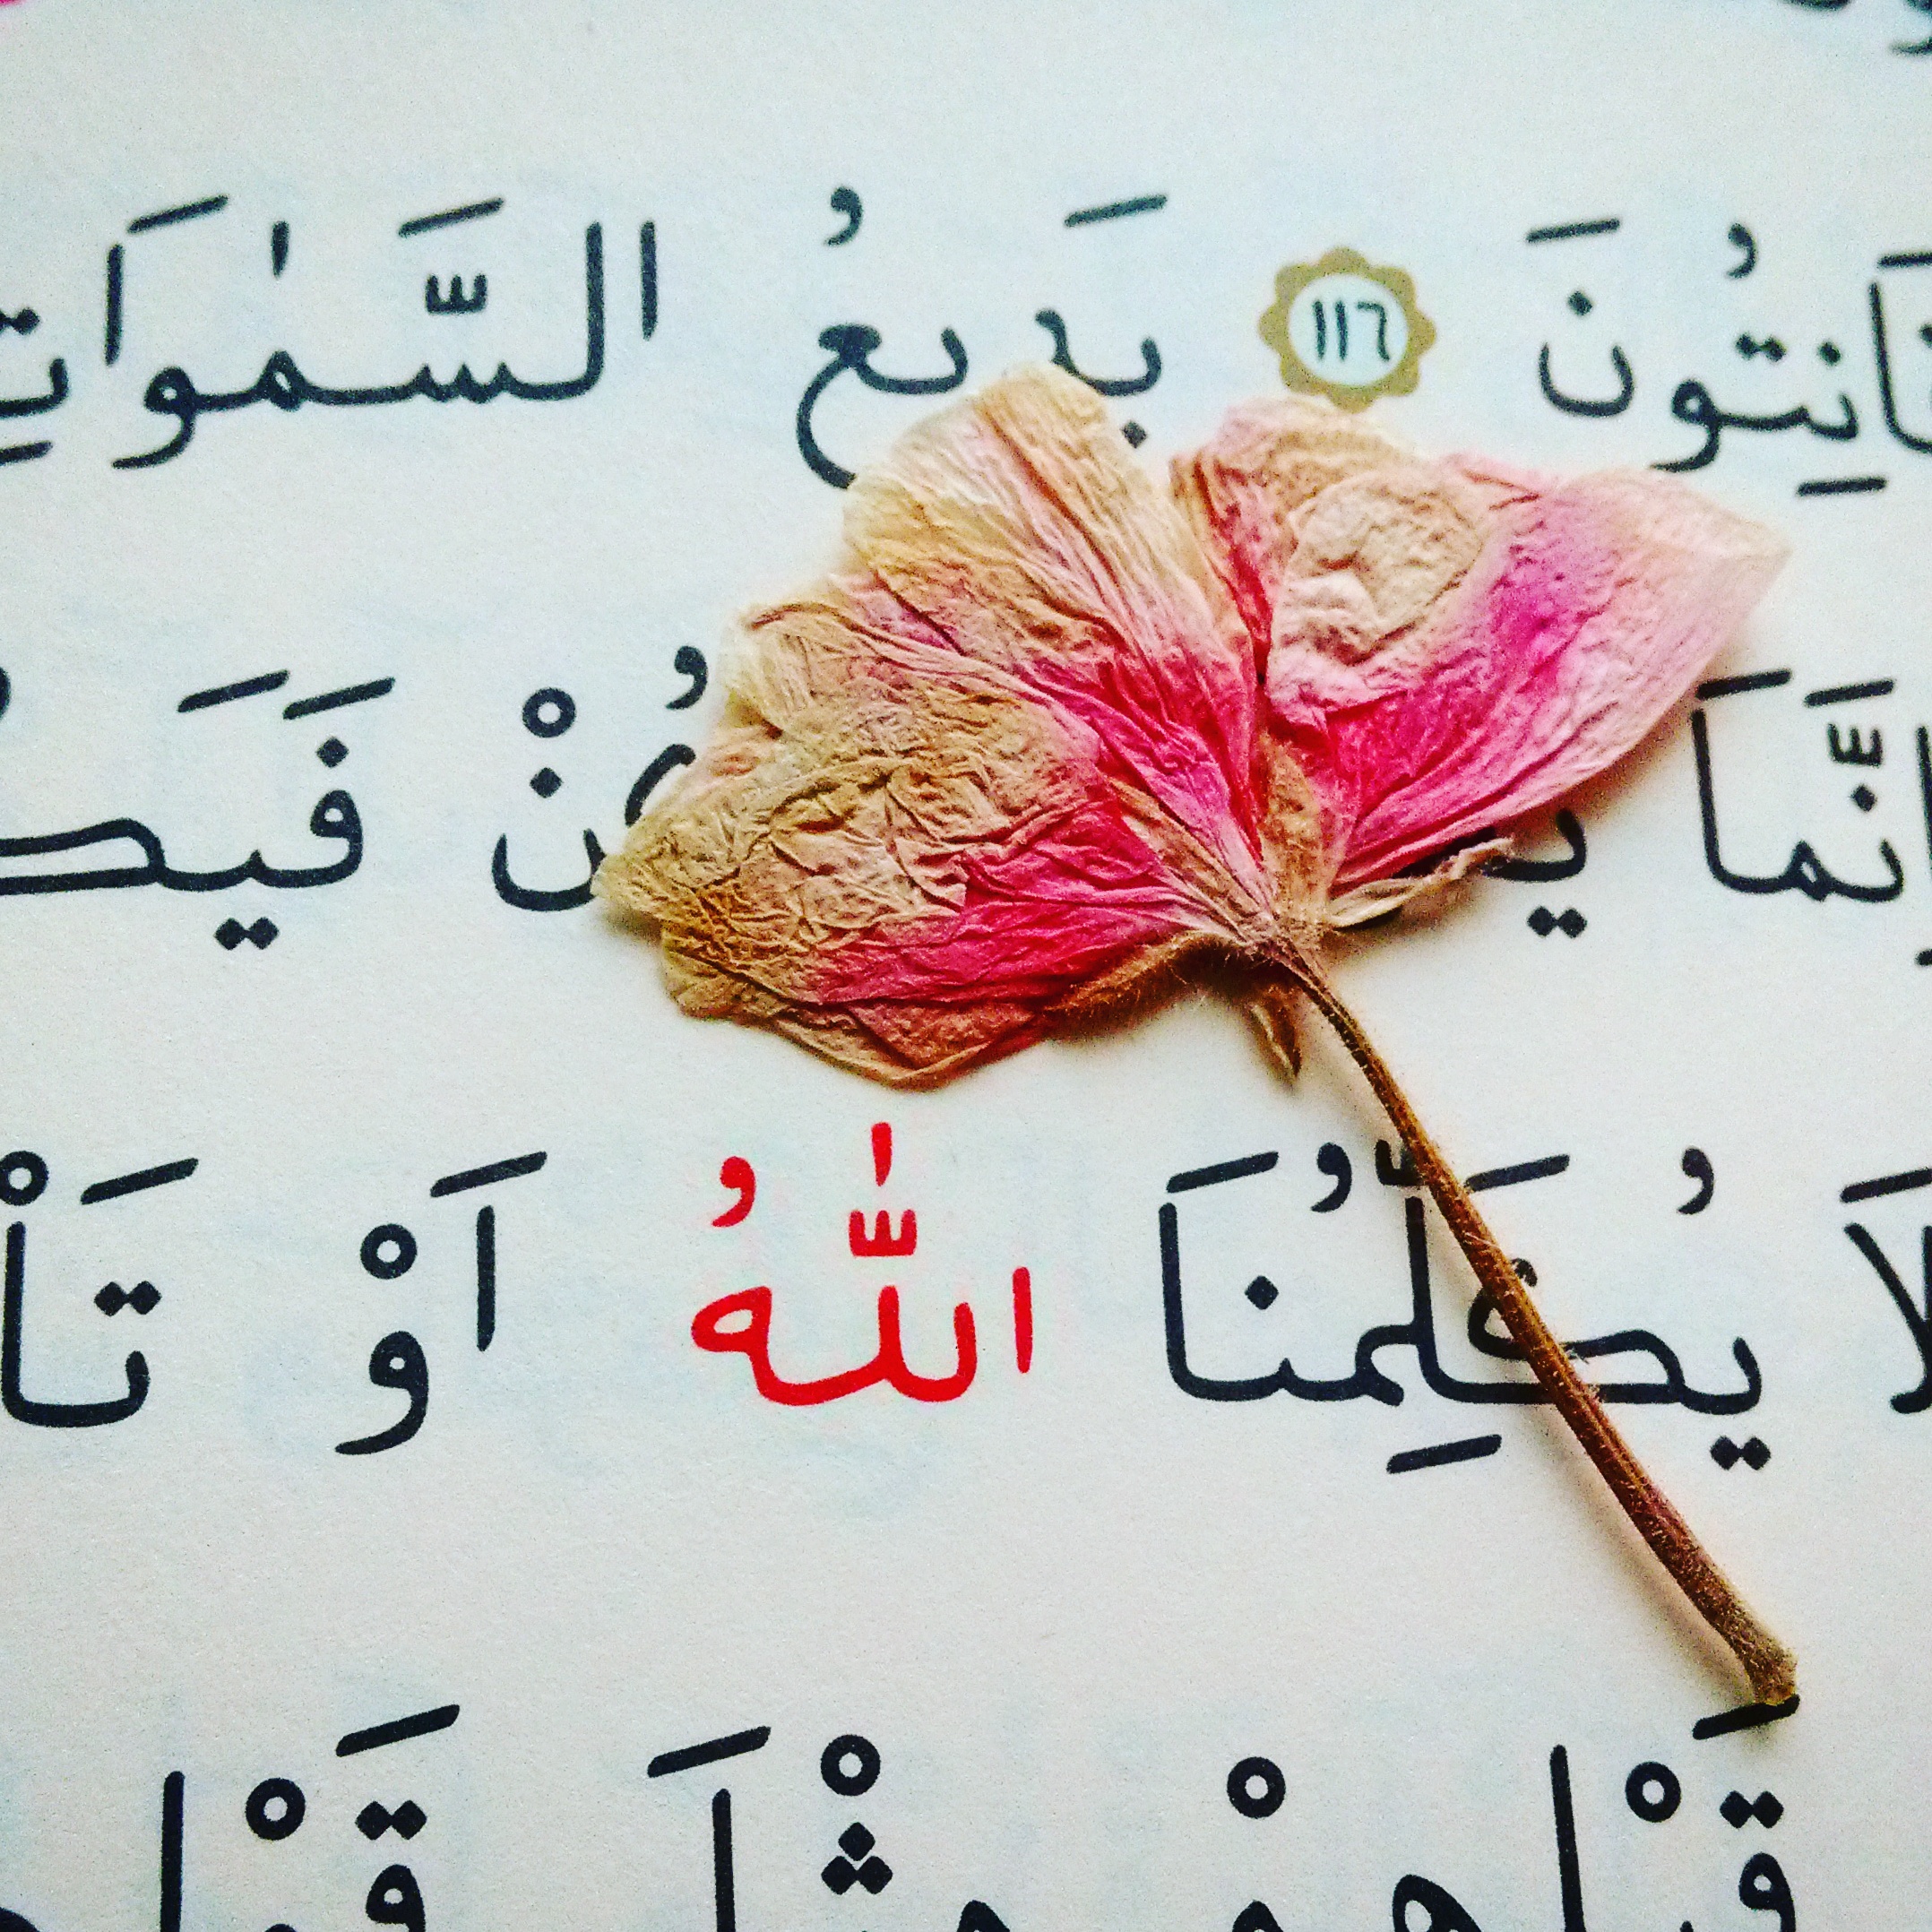 قَانِتُونَ ١١٦ بَدىعُ السَّمٰوَاتِ
اِنَّمَا كُنْ فَيَكُ
لَا يُكَلِّمُنَا اللّٰهُ اَوْ تَأْ
قَبْلهمْ مثْلَ قَبْله